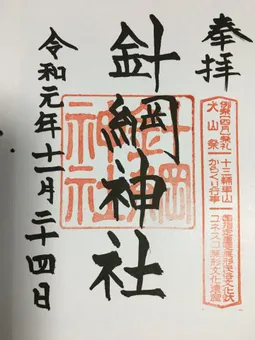 奉拝
例祭(四月)祭礼
犬山祭
十三輛車山
からくり行事
国指定重要無形民俗文化財
ユネスコ無形文化遺産
針綱神社
針綱
神社
令和元年十一月二十四日